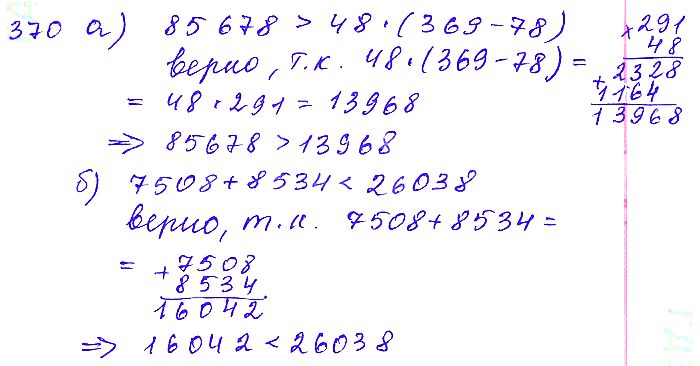 370 а) 85678 > 48·(369-78)
верно, т.к. 48·(369-78) =
= 48·291 = 13968
⇒ 85678 > 13968
× 291
48
+ 2328
1164
13968
б) 7508+8534 < 26038
верно, т.к. 7508+8534 =
= + 7508
8534
16042
⇒ 16042 < 26038